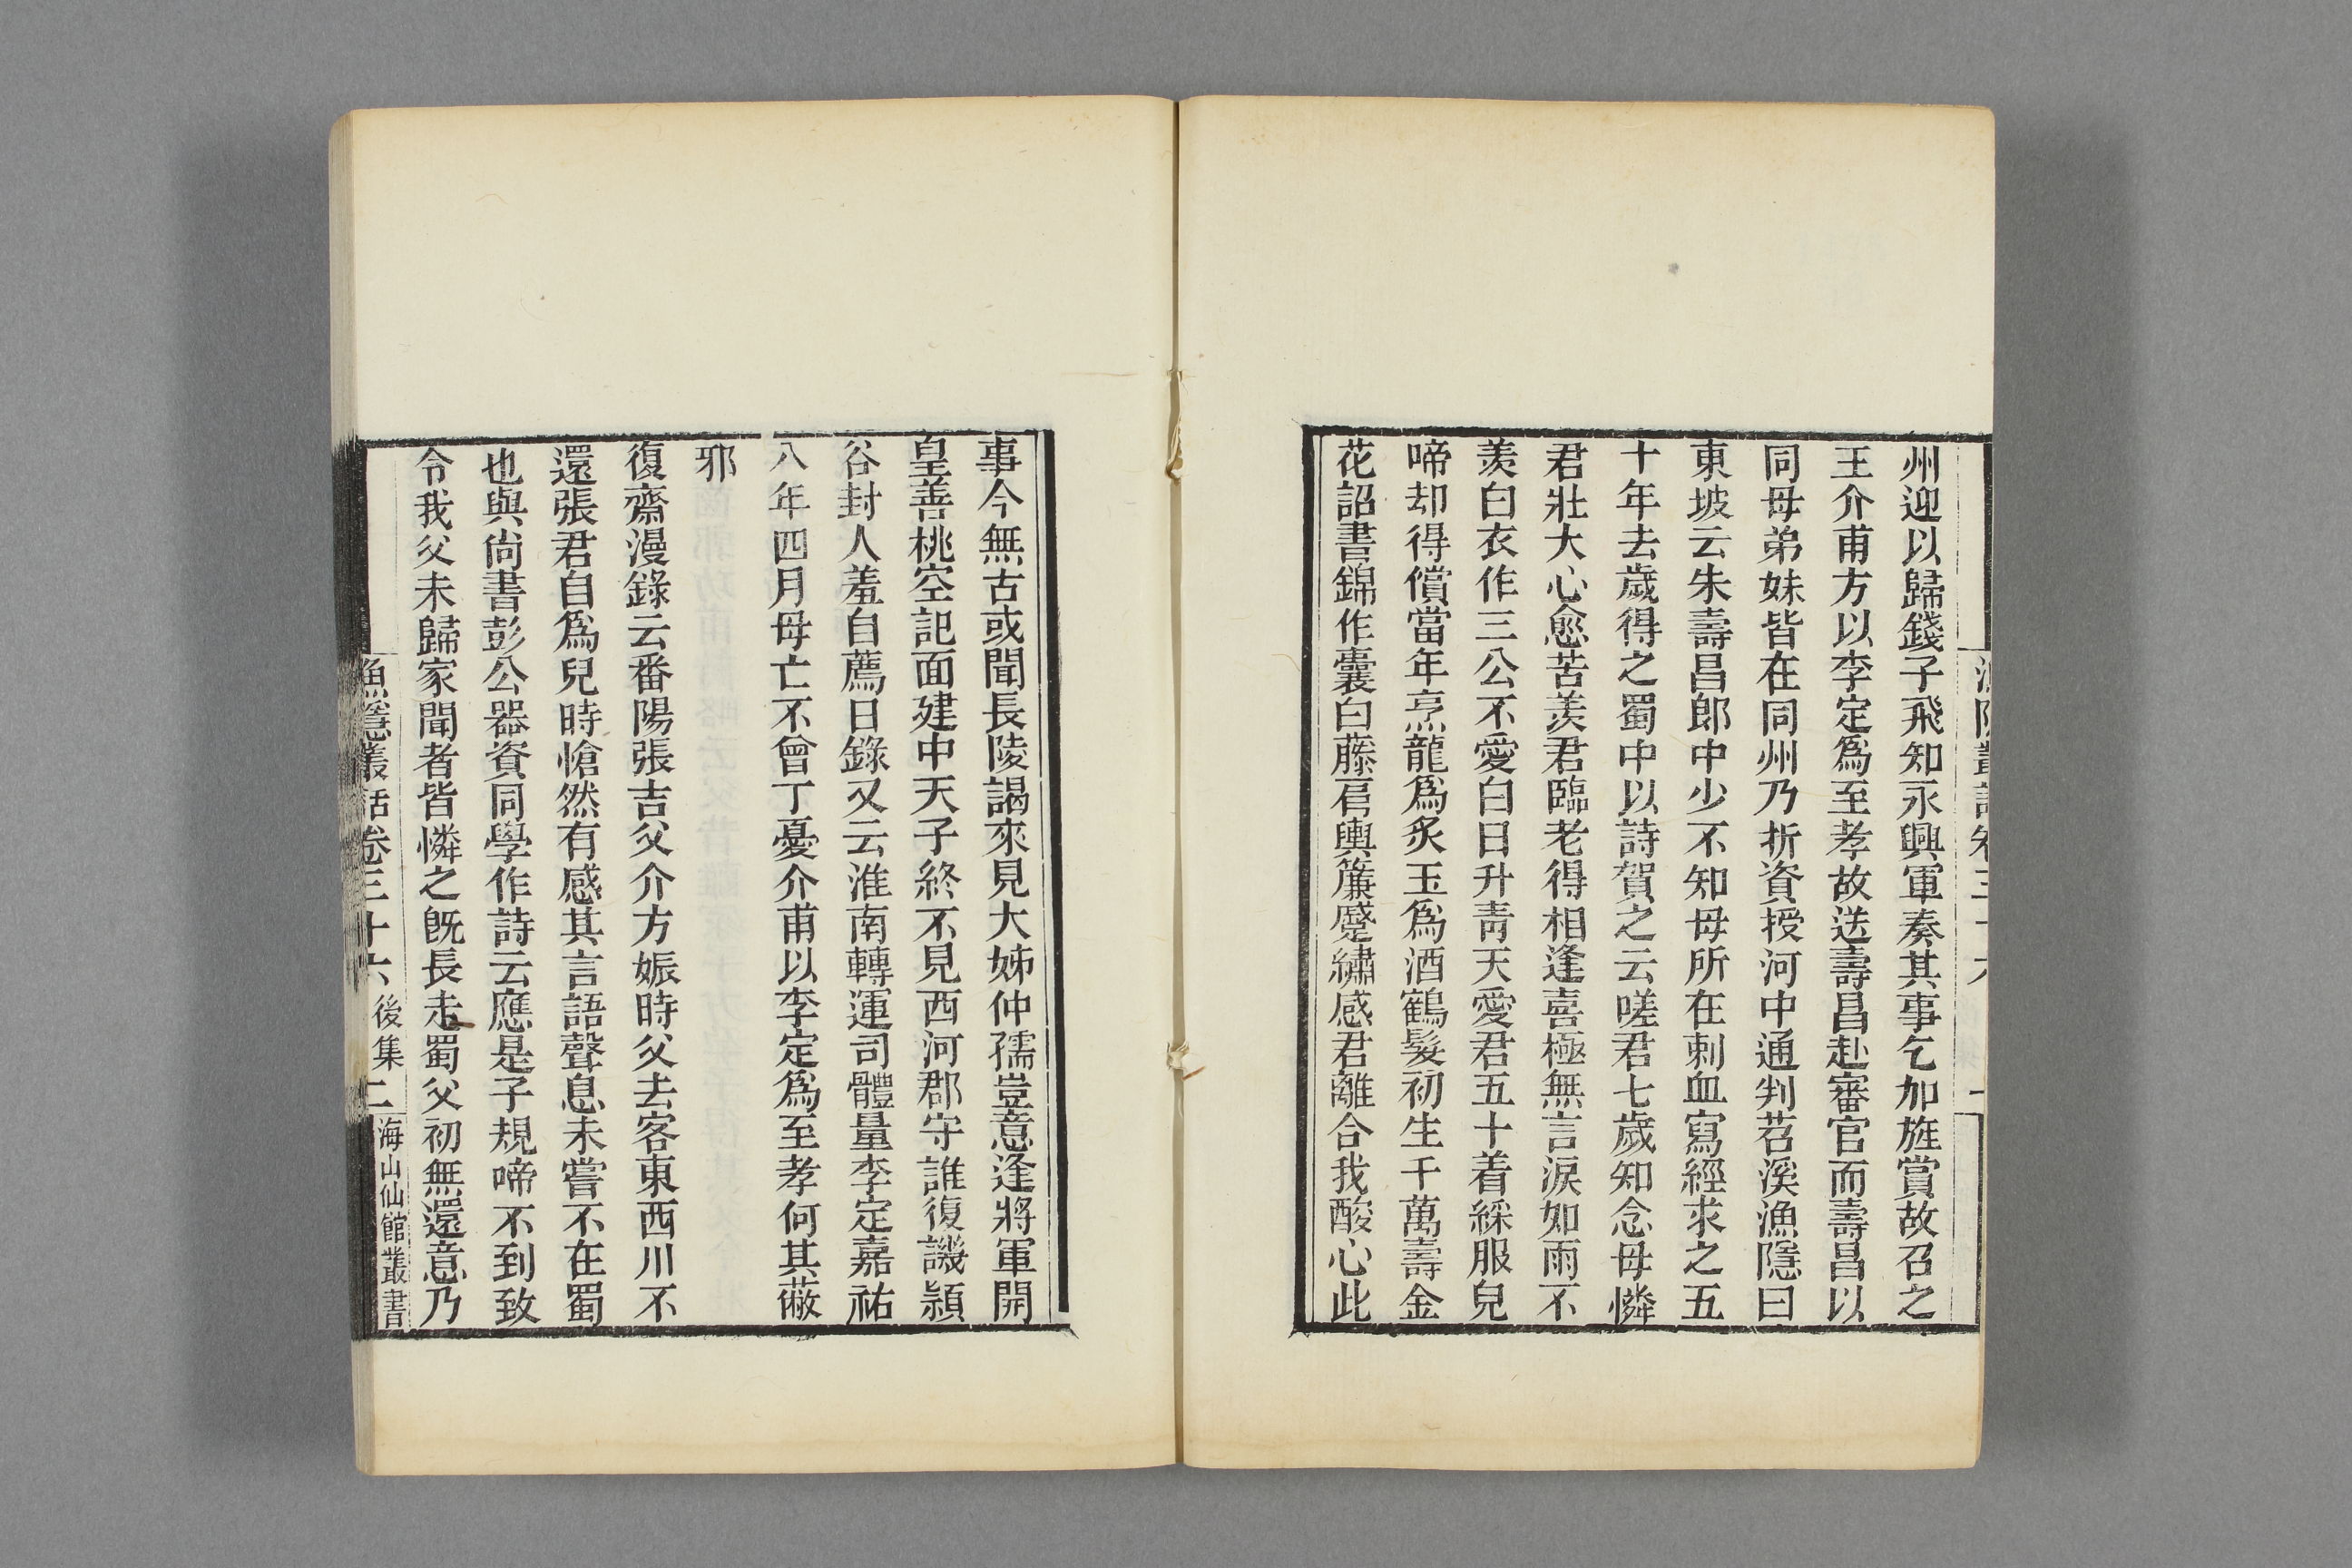 州迎以歸錢子飛知永興軍奏其事乞加旌賞故召之
王介甫方以李定爲至孝故送壽昌赴審官而壽昌以
同母弟妹皆在同州乃折資授河中通判苕溪漁隱曰
東坡云朱壽昌郎中少不知母所在刺血寫經求之五
十年去歲得之蜀中以詩賀之云嗟君七歲知念母憐
君壯大心愈苦羨君臨老得相逢喜極無言淚如雨不
羨白衣作三公不愛白日升靑天愛君五十着綵服兒
啼却得償當年烹龍爲炙玉爲酒鶴髮初生千萬壽金
花詔書錦作囊白藤肩輿簾蹙繡感君離合我酸心此
事今無古或聞長陵謁來見大姊仲孺豈意逢將軍開
皇善桃空記面建中天子終不見西河郡守誰復譏潁
谷封人羞自薦日錄又云淮南轉運司體量李定嘉祐
八年四月母亡不曾丁憂介甫以李定爲至孝何其蔽
邪
復齋漫錄云番陽張吉父介方娠時父去客東西川不
還張君自爲兒時愴然有感其言語聲息未嘗不在蜀
也與尙書彭公器資同學作詩云應是子規啼不到致
令我父未歸家聞者皆憐之旣長走蜀父初無還意乃
漁隱叢話卷三十六 後集 二 海山仙館叢書